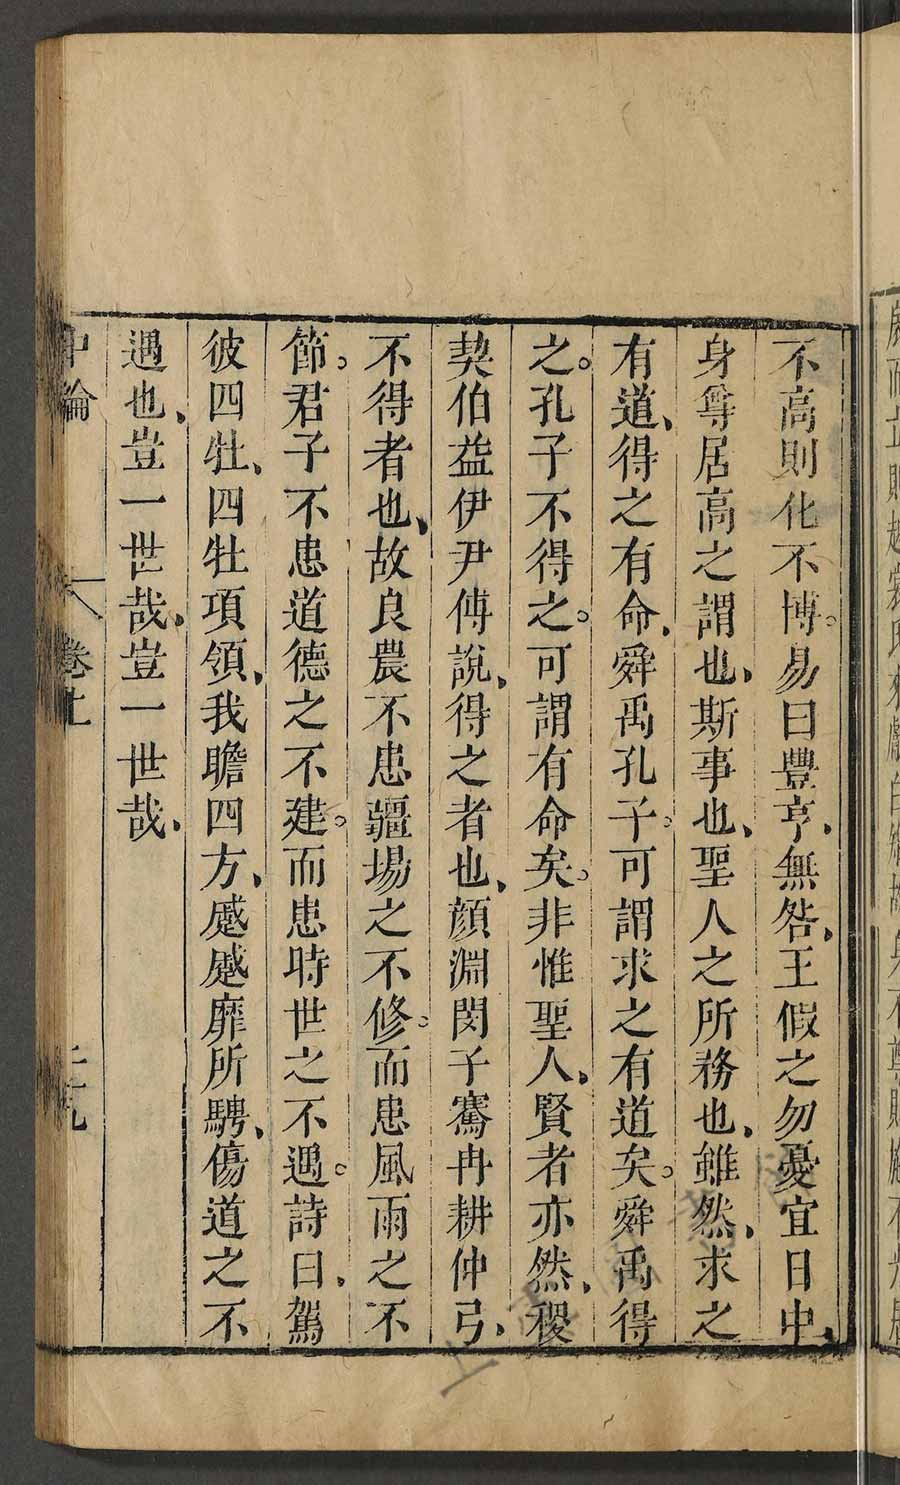 不高則化不博。易曰豐亨、無咎、王假之勿憂宜日中、
身尊居高之謂也、斯事也、聖人之所務也、雖然、求之
有道、得之有命、舜禹孔子。可謂求之有道矣。舜禹得
之。孔子不得之。可謂有命矣。非惟聖人、賢者亦然、稷
契伯益伊尹傅說、得之者也、顏淵閔子騫冉耕仲弓、
不得者也、故良農不患疆場之不修。而患風雨之不
節。君子不患道德之不建。而患時世之不遇。詩曰、駕
彼四牡、四牡項領、我瞻四方、蹙蹙靡所騁、傷道之不
遇也、豈一世哉、豈一世哉、
中論
卷上